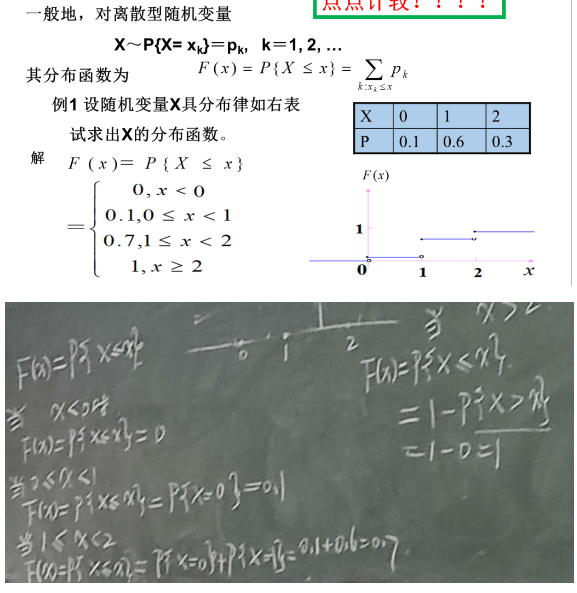 点点计较！！！！
一般地，对离散型随机变量
X～P{X= xk}＝pk, k＝1, 2, …
其分布函数为 F(x) = P{X ≤ x} = ∑ pk
k:xk≤x
例1 设随机变量X具分布律如右表
试求出X的分布函数。
X 0 1 2
P 0.1 0.6 0.3
解 F(x)＝ P{X ≤ x}
＝{
0, x < 0
0.1,0 ≤ x < 1
0.7,1 ≤ x < 2
1, x ≥ 2
F(x)
1
0 1 2 x
0 1 2
F(x)=P{X≤x}
当 x<0时,
F(x)=P{X≤x}=0
当0≤x<1
F(x)=P{X≤x}=P{X=0}=0.1
当1≤x<2
F(x)=P{X≤x}=P{X=0}+P{X=1}=0.1+0.6=0.7
当 x>2
F(x)=P{X≤x}
=1-P{X>x}
=1-0=1